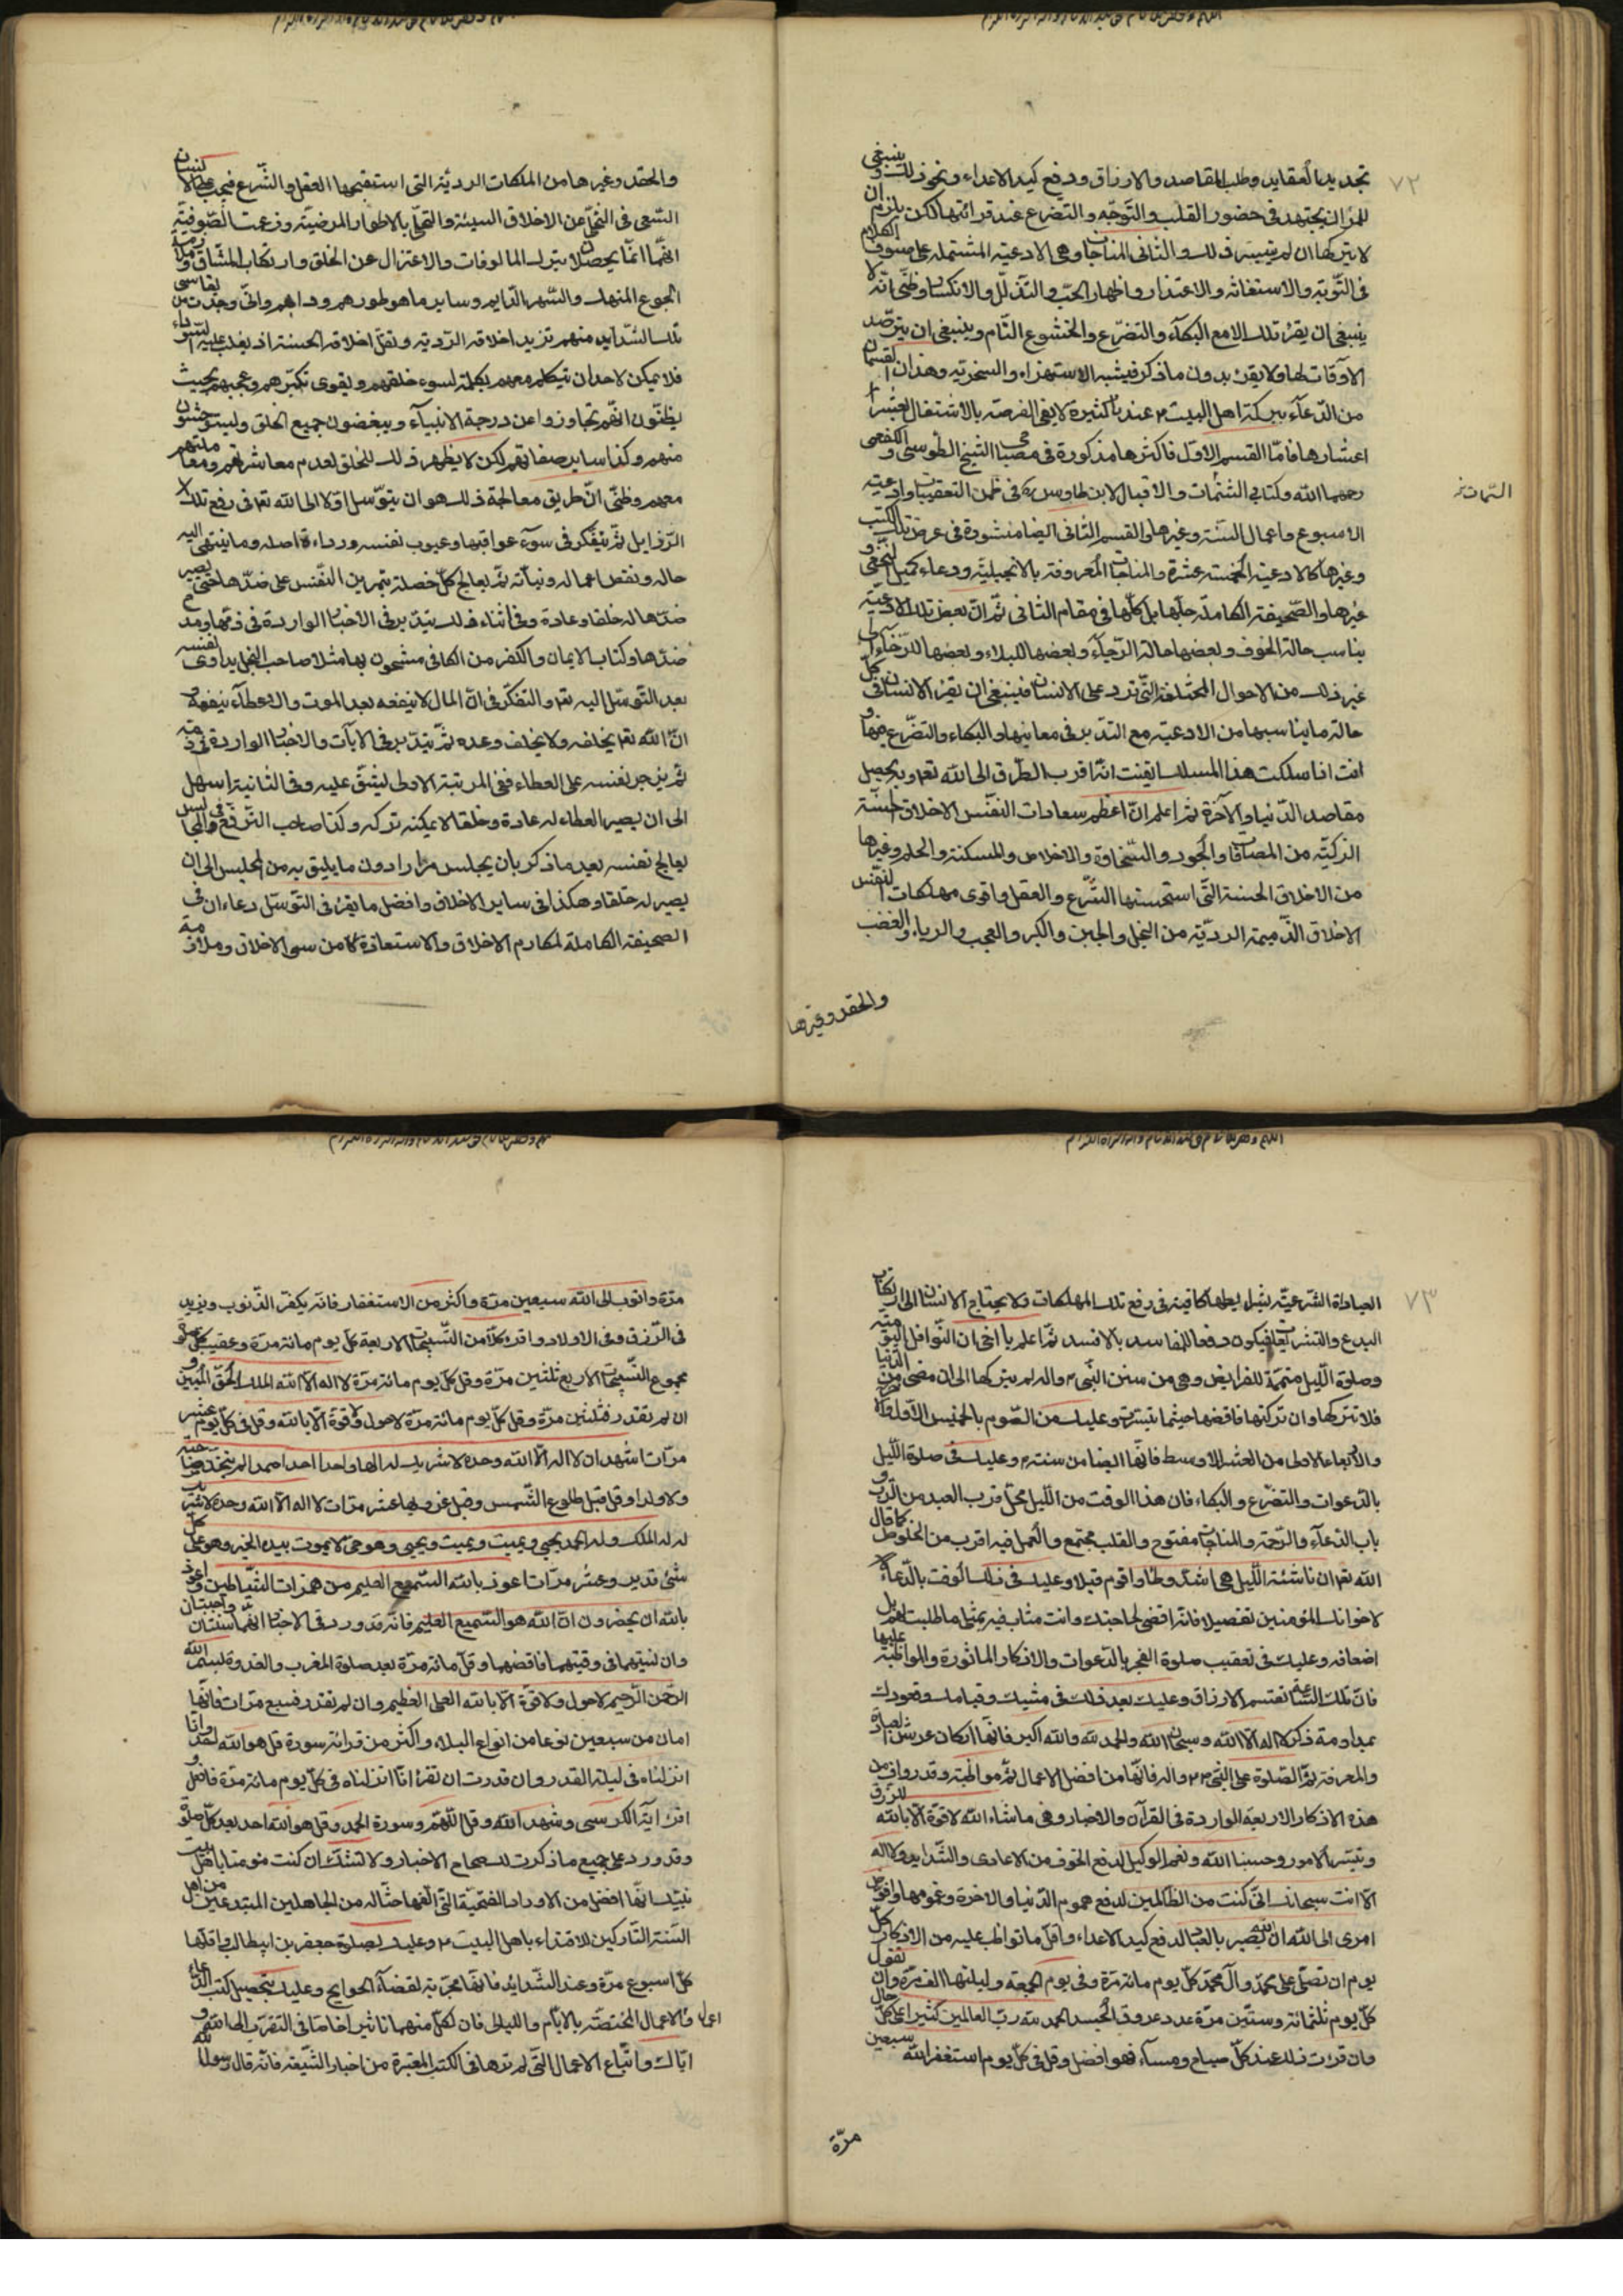 ٧٢
تجديد العقايد وطلب المقاصد والارزاق ودفع كيد الاعداء ونحو ذلك وينبغى
للمرء ان يجتهد فى حضور القلب والتوجّه والتضرع عند قرائتها لكن يلزم ان
لا يتركها ان لم يتيسر ذلك والثانى المناجات وهى الادعية المشتملة على صنوف الكلام
فى التّوبة والاستغاثة والاعتذار واظهار الحبّ والتذلّل والانكسار وظنّى انّه لا
ينبغى ان يقرء تلك الا مع البكآء والتضرّع والخشوع التّام وينبغى ان يترصّد
الاوقات لها ولا يقرء بدون ما ذكر فيشبه الاستهزاء والسخرية وهذان القسمان
من الدّعآء ببركة اهل البيت ع عندنا كثيرة لا يفى الفرصة بالاشتغال بعشر
اعشارها فامّا القسم الاوّل فاكثرها مذكورة فى مصباحى الشيخ الطوسى والكفعمى
رحمهما الله وكتابى التتمّات والاقبال لابن طاوس ره فى ضمن التعقيبات وادعية
السّمات خ
الاسبوع واعمال السّنة وغيرها والقسم الثانى ايضا منشورة فى عرض تلك الكتب
وغيرها كالادعية الخمسة عشرة والمناجات المعروفة بالانجيلية ودعاء كميل النخعى و
غيرها والصّحيفة الكاملة جلّها بل كلّها فى مقام الثانى ثمّ انّ بعض تلك الادعية
يناسب حالة الخوف وبعضها حالة الرّجآء وبعضها للبلاء وبعضها للرّخآء الى
غير ذلك من الاحوال المختلفة التّى ترد على الانسان فينبغى ان يقرء الانسان فى كلّ
حالة ما يناسبها من الادعية مع التدبر فى معانيها والبكاء والتضرّع فيها و
انت اذا سلكت هذا المسلك ايقنت انّه اقرب الطّرق الى الله تعا وبه يحصل
مقاصد الدّنيا والآخرة ثم اعلم انّ اعظم سعادات النفس الاخلاق الحسنة
الزكيّة من المصافات والجود والسّخاوة والاخلاص والمسكنة والحلم وغيرها
من الاخلاق الحسنة التّى استحسنها الشّرع والعقل واقوى مهلكات النفس
الاخلاق الذّميمة الرديّة من البخل والجبن والكبر والعجب والرياء والغضب
والحقد وغيرها
والحقد وغيرها من الملكات الرديّة التى استقبحها العقل والشّرع فيجب على الانسان
السّعى فى التخلّى عن الاخلاق السيئة والتحلّى بالاطوار المرضيّة وزعمت الصّوفية
انّها انّما يحصلان بترك المالوفات والاعتزال عن الخلق وارتكاب المشاق وملازمة
الجوع المنهك والسّهر الدّايم وساير ما هو طورهم ودابهم وانّى وجدت من يقاسى
تلك الشّدايد منهم تزيد اخلاقه الرّدية وتقلّ اخلاقه الحسنة اذ يغلب عليهم السّوداء
فلا يمكن لاحد ان يتكلم معهم بكلمة لسوء خلقهم ويقوى تكبّرهم وعجبهم بحيث
يظنّون انّهم تجاوزوا عن درجة الانبيآء ويبغضون جميع الخلق ويستوحشون
منهم وكذا ساير صفاتهم لكن لا يظهر ذلك للخلق لعدم معاشرتهم ومعاملتهم
معهم وظنّى انّ طريق معالجة ذلك هو ان يتوّسل اوّلا الى الله تعا فى رفع تلك
الرّذايل ثمّ يتفكر فى سوء عواقبها وعيوب نفسه ورداءة اصله وما ينتهى اليه
حاله ونقص اعماله ونيآته ثمّ يعالج كلّ خصلة بتمرين النّفس على ضدّها حتى يصير
ضدّها له خلقا وعادة وفى اثناء ذلك يتدبر فى الاخبار الواردة فى ذمّها ومدح
ضدّها وكتاب الايمان والكفر من الكافى مشحون بها مثلا صاحب البخل يداوى نفسه
بعد التّوسّل اليه تعا والتفكّر فى انّ المال لا ينفعه بعد الموت والاعطآء ينفعه و
انّ الله تعا يخلفه ولا يخلف وعده ثمّ يتدّبر فى الآيات والاخبار الواردة فى ذمّه
ثم يزجر نفسه على العطاء ففى المرتبة الاولى يشقّ عليه وفى الثانية اسهل
الى ان يصير العطاء له عادة وخلقا لا يمكنه تركه وكذا صاحب الترفّع فى المجالس
يعالج نفسه بعد ما ذكر بان يجلس مرارا دون ما يليق به من المجلس الى ان
يصير له خلقا وهكذا فى ساير الاخلاق وافضل ما يقرء فى التوسّل دعاءان فى
الصحيفة الكاملة لمكارم الاخلاق والاستعاذة من سىء الاخلاق وملازمة
٧٣
العبادات الشّرعيّة بشرايطها كافية فى رفع تلك المهلكات ولا يحتاج الانسان الى ارتكاب
البدع والتشريعات فيكون دفعا للفاسد بالافسد ثمّ اعلم يا اخى ان النّوافل اليومية
وصلوة اللّيل متممة للفرايض وهى من سنن النّبى ص واله لم يتركها الى ان مضى من الدّنيا
فلا تتركها وان تركتها فاقضها حيثما تيسّرت وعليك من الصّوم بالخميس الاوّل والاخر
والاربعاء الاولى من العشر الاوسط فانّها ايضا من سنته ص وعليك فى صلوة اللّيل
بالدّعوات والتضرّع والبكاء فان هذا الوقت من اللّيل محلّ قرب العبد من الرّب و
باب الدّعآء والرّحمة والمناجات مفتوح والقلب مجتمع والعمل فيه اقرب من الخلوص كما قال
الله تعا ان ناشئة اللّيل هى اشدّ وطئا واقوم قيلا وعليك فى ذلك الوقت بالدّعآء
لاخوانك المؤمنين تفصيلا فانه اقضى لحاجتك وانت مثاب فيه بمثل ما طلبت لهم بل
اضعافه وعليك فى تعقيب صلوة الفجر بالدّعوات والاذكار الماثورة والمواظبة عليها
فانّ تلك السّاعة تقتسم الارزاق وعليك بعد ذلك فى مشيك وقيامك وقعودك
بمداومة ذكر لا اله الّا الله وسبحان الله والحمد لله والله اكبر فانّها اركان عرش العبادة
والمعرفة ثمّ الصّلوة على النّبى ص واله فانّها من افضل الاعمال ثمّ مواظبة وقد روافى من
هذه الاذكار الاربعة الواردة فى القرآن والاخبار وهى ما شاء الله لا قوّة الّا بالله للرزق
وتيسّر الامور وحسبنا الله ونعم الوكيل لدفع الخوف من الاعادى والشّدايد ولا اله
الّا انت سبحانك انّى كنت من الظالمين لدفع هموم الدّنيا والاخرة وغمومها وافوّض
امرى الى الله ان الله بصير بالعباد لدفع كيد الاعداء واقلّ ما تواظب عليه من الاذكار كلّ
يوم ان تصلّى على محمّد وآل محمّد كلّ يوم مائة مرّة وفى يوم الجمعة وليلتها الف مرّة وان تقول
كلّ يوم ثلثمائة وستّين مرّة عدد عروق الجسد الحمد لله ربّ العالمين كثيرا على كلّ حال
وان قرئت ذلك عند كلّ صباح ومسآء فهو افضل وقل فى كلّ يوم استغفر الله سبعين
مرّة
مرّة واتوب الى الله سبعين مرّة واكثر من الاستغفار فانه يكفر الذّنوب ويزيد
فى الرّزق وفى الاولاد واقرء كلا من التّسبيحات الاربعة كلّ يوم مائة مرّة وعقيب كلّ صلوة
مجموع التّسبيحات الاربع ثلثين مرّة وقل كلّ يوم مائة مرّة لا اله الّا الله الملك الحقّ المبين و
ان لم تقدر فثلثين مرّة وقل كلّ يوم مائة مرّة لا حول ولا قوّة الّا بالله وقل فى كلّ يوم عشر
مرّات اشهد ان لا اله الّا الله وحده لا شريك له الها واحدا احدا صمدا لم يتّخذ صاحبة
ولا ولدا وقل قبل طلوع الشّمس وقبل غروبها عشر مرّات لا اله الّا الله وحده لا شريك
له له الملك وله الحمد يحيى ويميت ويميت ويحيى وهو حىّ لا يموت بيده الخير وهو على كلّ
شىء قدير وعشر مرّات اعوذ بالله السّميع العليم من همزات الشّياطين واعوذ
بالله ان يحضرون انّ الله هو السّميع العليم فانّه قد ورد فى الاخبار انّهما سنّتان واجبتان
وان نسيتهما فى وقتيهما فاقضهما وقل مائة مرّة بعد صلوة المغرب والغدوة بسم الله
الرّحمن الرّحيم لا حول ولا قوّة الّا بالله العلى العظيم وان لم تقدر فسبع مرّات فانّها
امان من سبعين نوعا من انواع البلاء واكثر من قرائة سورة قل هو الله احد وانّا
انزلناه فى ليلة القدر وان قدرت ان تقرء انّا انزلناه فى كلّ يوم مائة مرّة فافعل و
اقرء آية الكرسى وشهد الله وقل اللّهم وسورة الحمد وقل هو الله احد بعد كلّ صلوة
وقد ورد على جميع ما ذكرت لك صحاح الاخبار ولا تشكّ ان كنت مؤمنا باهل بيت
نبيّك انّها افضل من الاوراد الفتحيّة التى الّفها حثالة من الجاهلين المبتدعين من اهل
السّنة التّاركين للاقتداء باهل البيت ع وعليك بصلوة جعفر بن ابيطالب فى اقلّها
كلّ اسبوع مرّة وعند الشّدايد فانّها مجرّبة لقضآء الحوايج وعليك بتحصيل كتب الدّعاء
واعمال والاعمال المختصّة بالايّام والليالى فان لكلّ منهما تاثيرا خاصّا فى التقرّب الى الله و
ايّاك واتّباع الاعمال التّى لم ترها فى الكتب المعتبرة من اخبار الشّيعة فانّه قال رسول الله